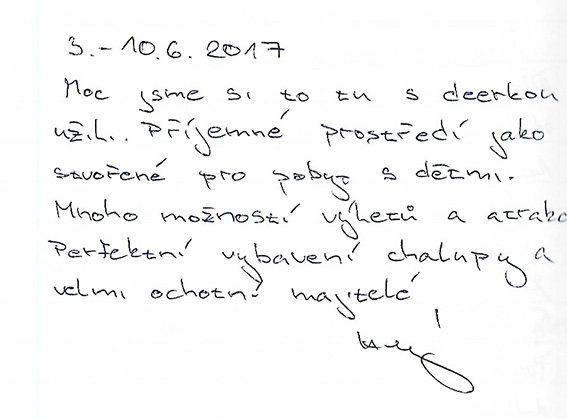 3. - 10. 6. 2017
Moc jsme si to tu s dcerkou
užili. Příjemné prostředí jako
stvořené pro pobyt s dětmi.
Mnoho možností výletů a atrakc
Perfektní vybavení chalupy a
velmi ochotní majitelé
!